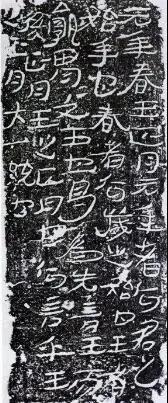 元年春王正月元年者何君之
始年也春者何歲之始也王者孰
謂文王也曷為先言王而
後言正月王正月也何言乎王
正月大一統也